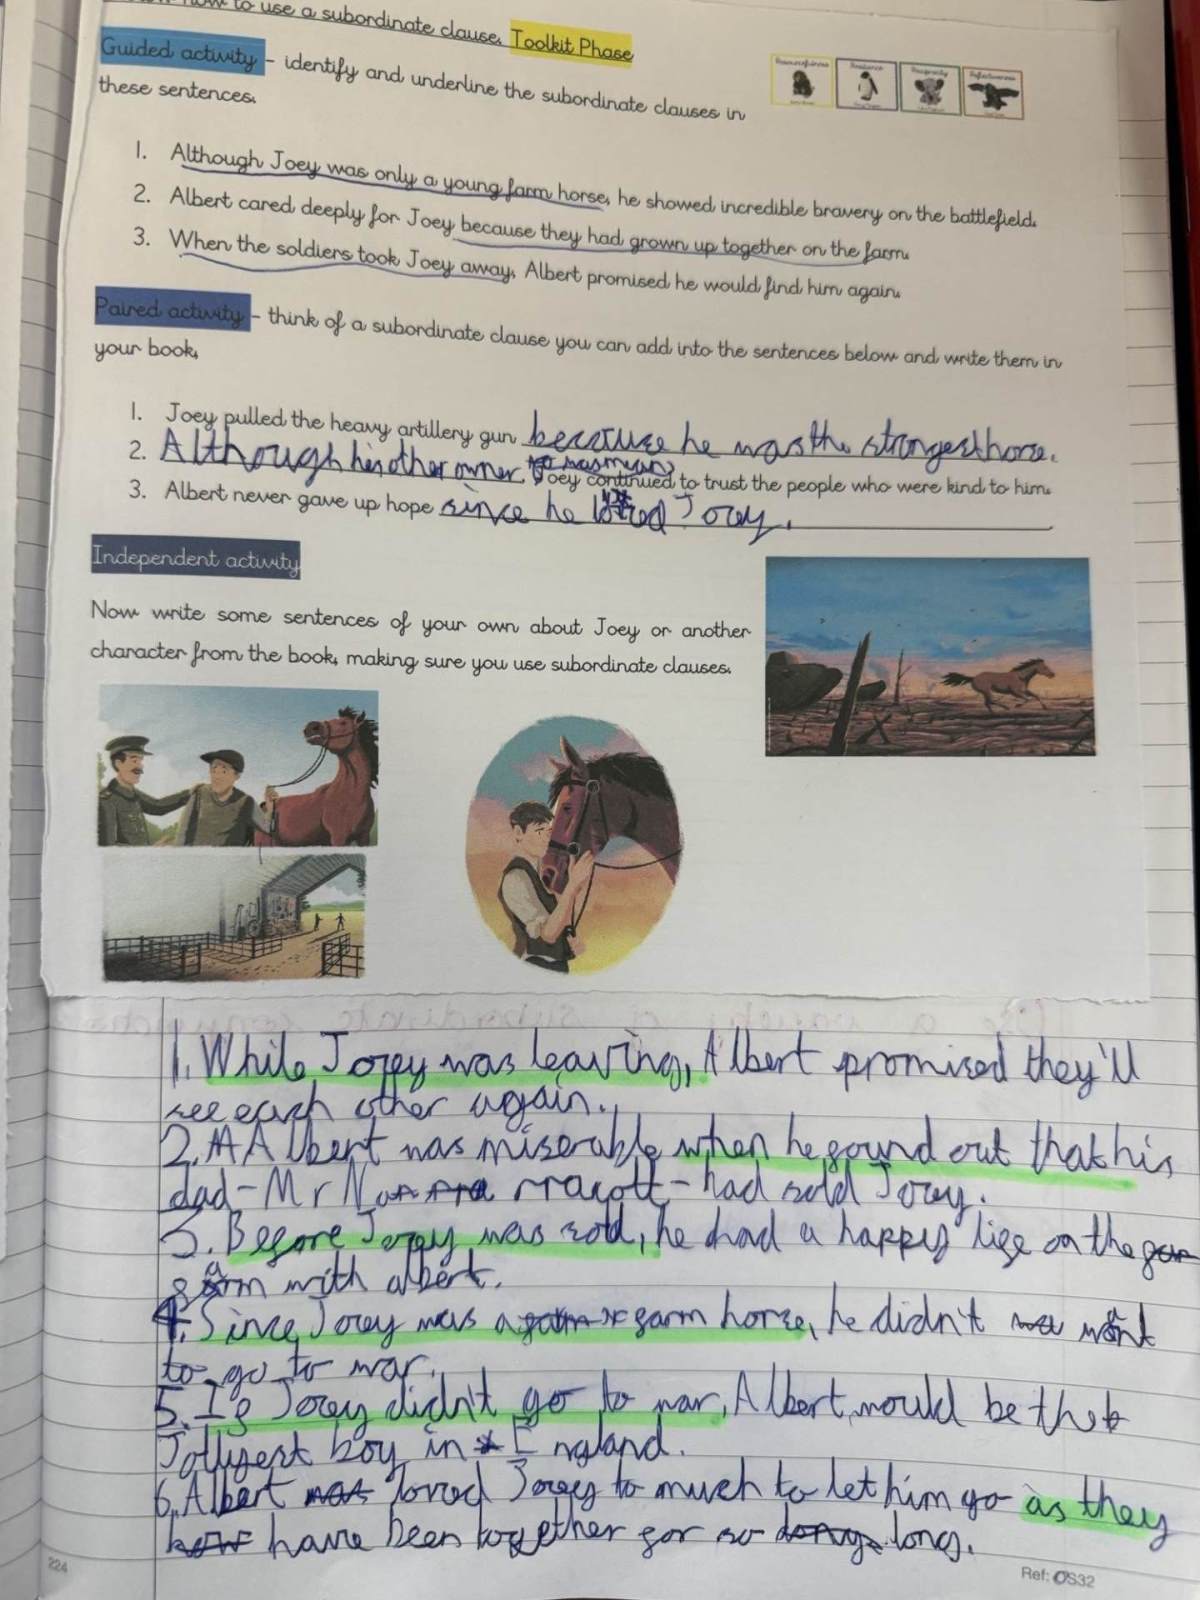 how to use a subordinate clause. Toolkit Phase
Guided activity - identify and underline the subordinate clauses in
these sentences.
Resourcefulness Resilience Reciprocity Reflectiveness
1. Although Joey was only a young farm horse, he showed incredible bravery on the battlefield.
2. Albert cared deeply for Joey because they had grown up together on the farm.
3. When the soldiers took Joey away, Albert promised he would find him again.
Paired activity - think of a subordinate clause you can add into the sentences below and write them in
your book.
1. Joey pulled the heavy artillery gun because he was the strongest horse.
2. Although his other owner was mean, Joey continued to trust the people who were kind to him.
3. Albert never gave up hope since he loved Joey.
Independent activity
Now write some sentences of your own about Joey or another
character from the book, making sure you use subordinate clauses.
1. While Joey was leaving, Albert promised they'll
see each other again.
2. Albert was miserable when he found out that his
dad - Mr Narracott - had sold Joey.
3. Before Joey was sold, he had a happy life on the
farm with albert.
4. Since Joey was a farm horse, he didn't want
to go to war.
5. If Joey didn't go to war, Albert would be the
Jollyest boy in England.
6. Albert loved Joey to much to let him go as they
have been together for so long.
224
Ref: OS32